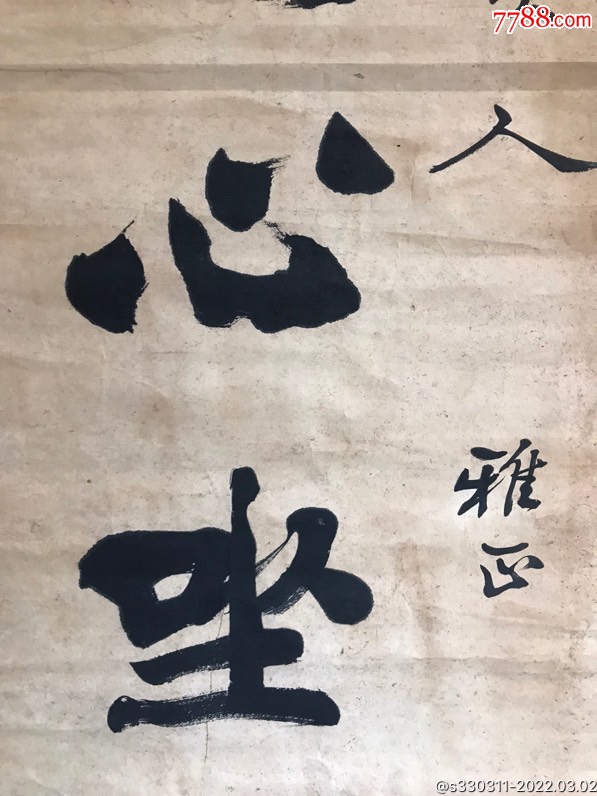 7788.com
人
雅正
心坐
@s330311-2022.03.02